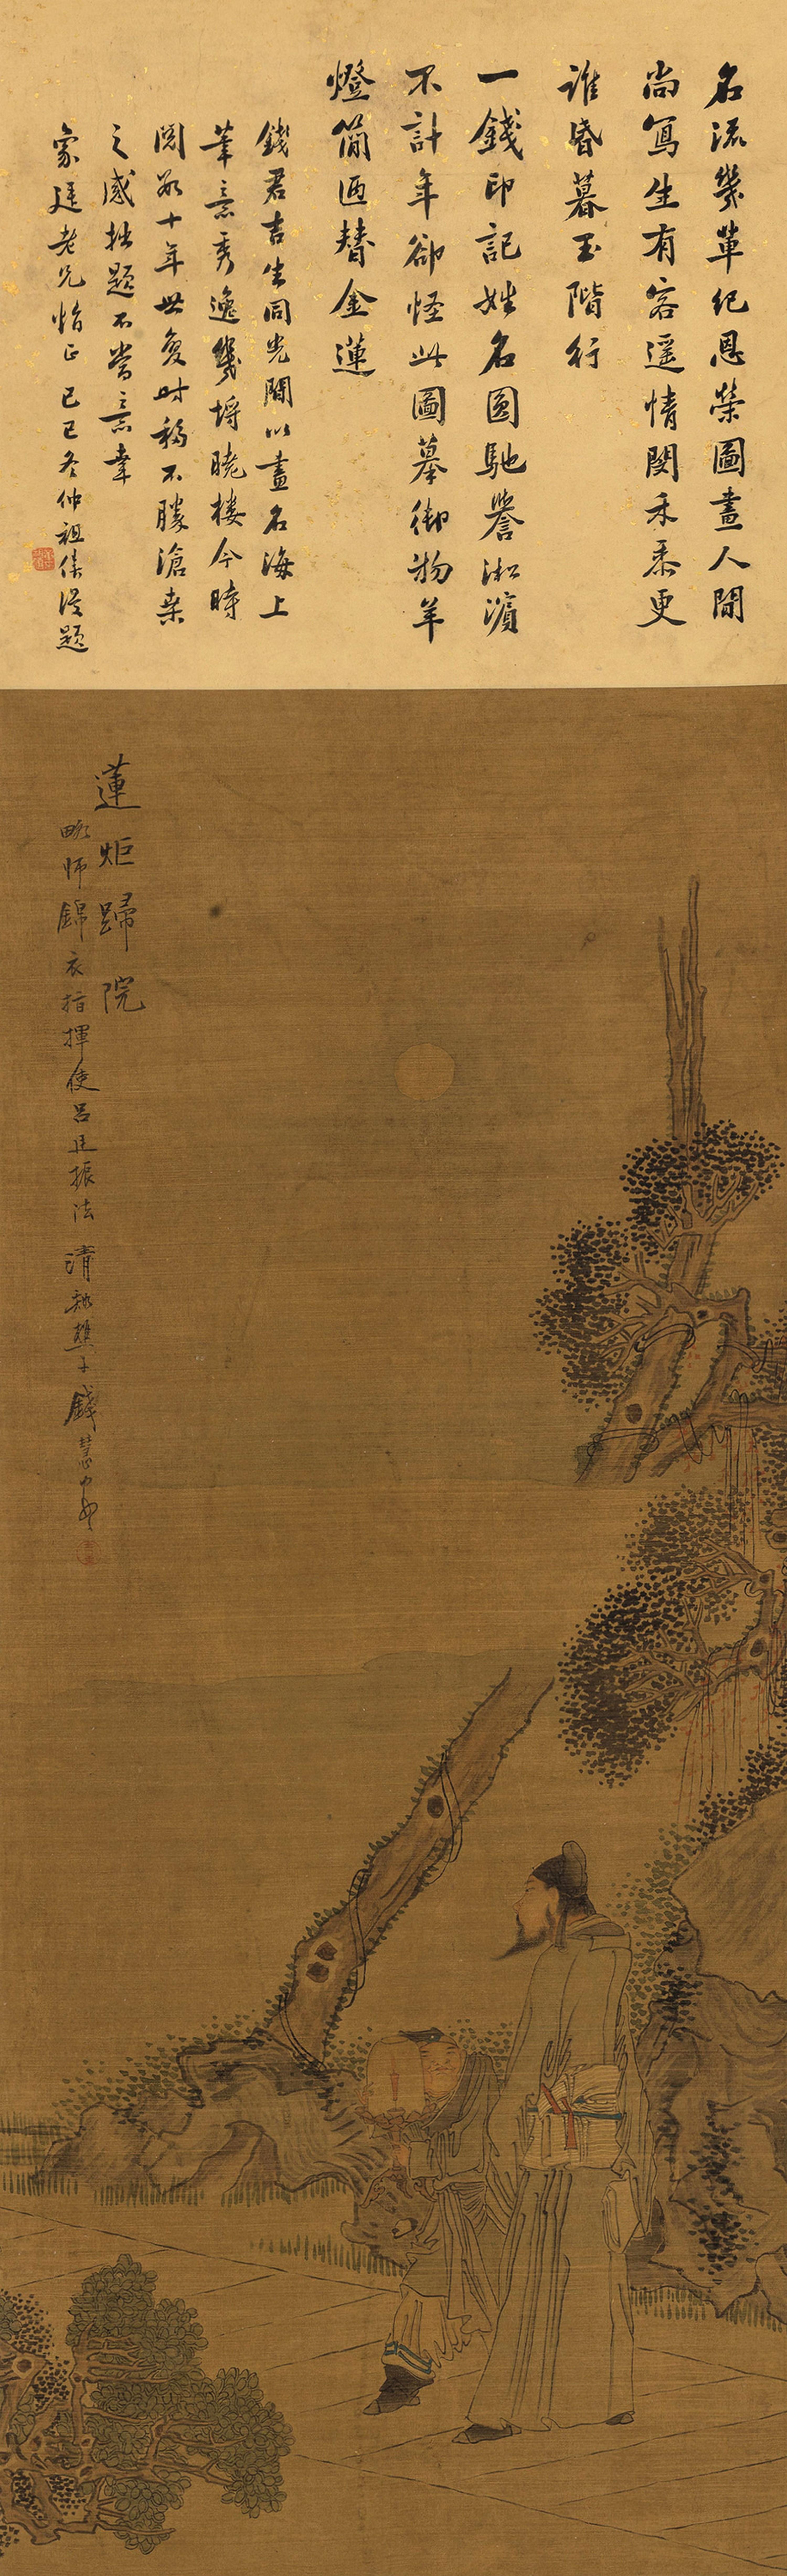 名流幾輩紀恩榮圖畫人間
尚寫生有客遥情関禾黍更
誰昏暮玉階行
一錢印記姓名圓馳譽淞濱
不計年卻怪此圖摹御物羊
燈簡迺替金蓮
錢君吉生同光間以畫名海上
筆意秀逸幾埒曉樓今時
閱數十年世變时移不勝滄桒
之感拙題不當意幸
象廷老兄惰正己巳冬仲祖疑題
蓮炬歸院
略師錦衣指揮使呂廷振法 清谿樵子錢慧安